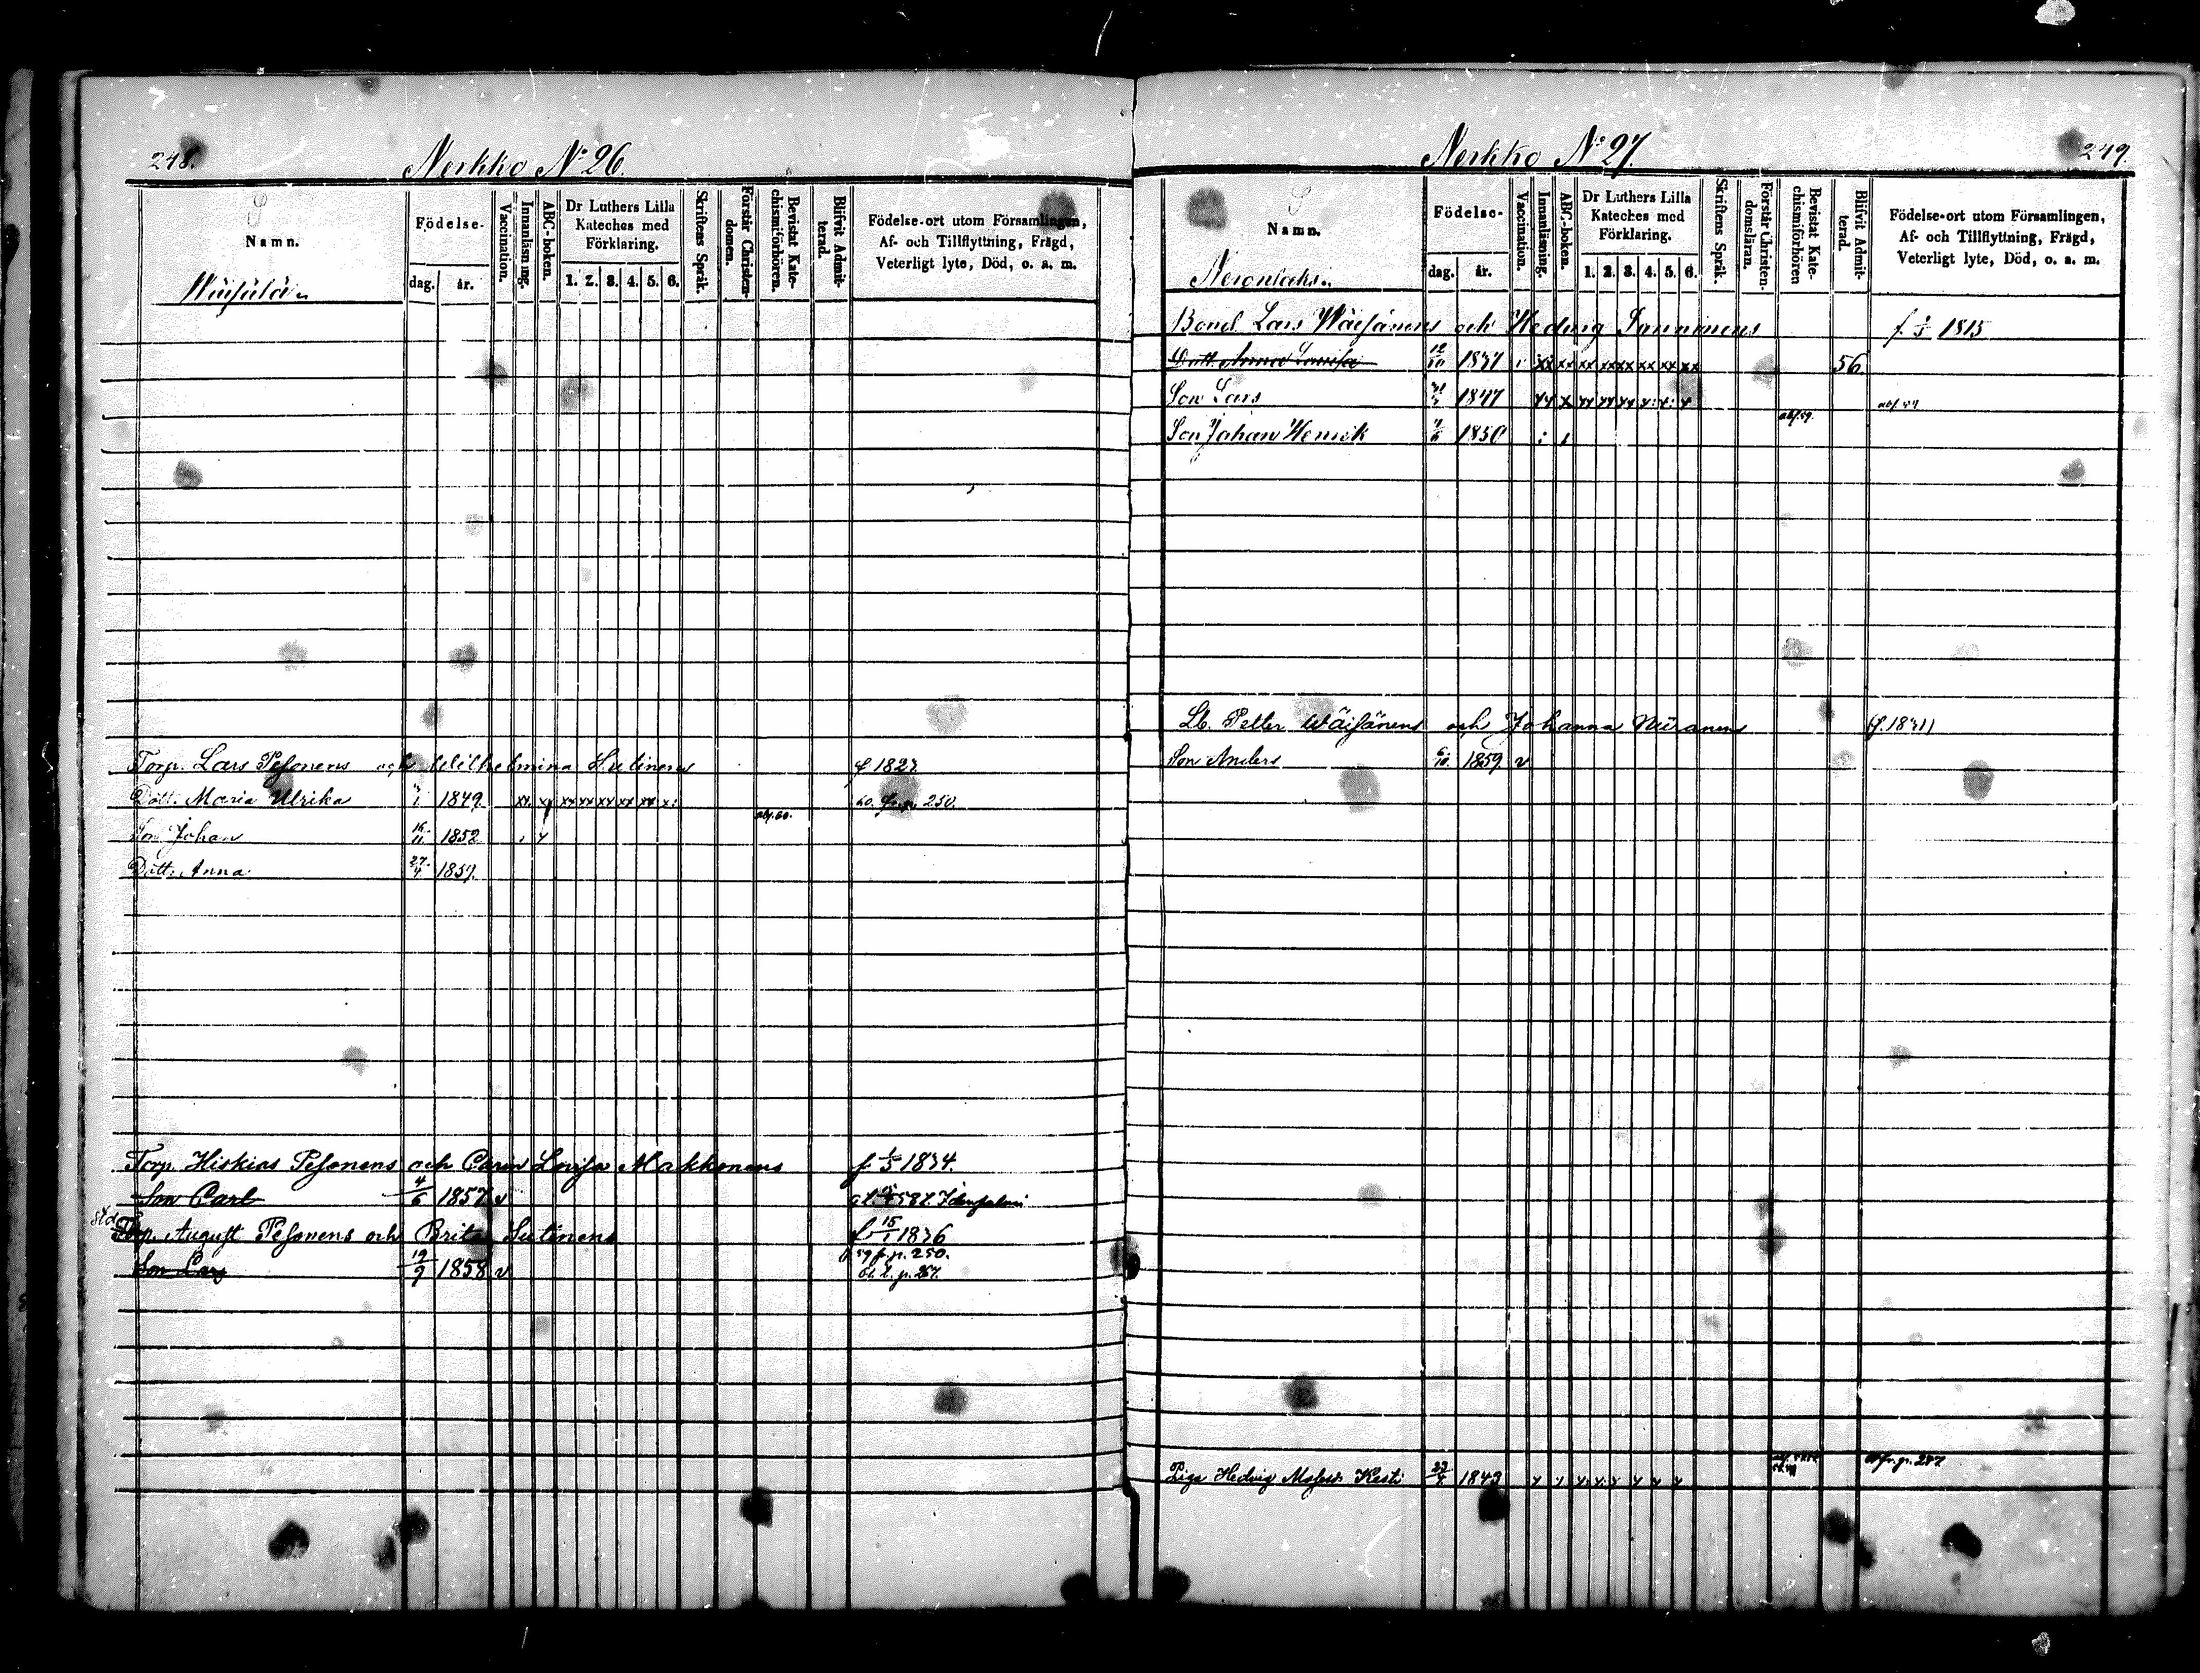 248.
Nerkko No 26.
Namn.
Födelse-
dag. år.
Vaccination.
Innanläsning.
ABC-boken.
Dr Luthers Lilla Kateches med Förklaring.
1. 2. 3. 4. 5. 6.
Skriftens Språk.
Förstår Christendomen.
Bevistat Katechismiförhören.
Blifvit Admitterad.
Födelse-ort utom Församlingen,
Af- och Tillflyttning, Frägd,
Veterligt lyte, Död, o. a. m.
Torp. Lars Pesonens och Wilhelmina Sutinens f 1827.
Dött. Maria Ulrika 1849. xx x xx xx xx xx xx x: 60. fr. p. 250.
abs. 60.
Son Johan 16/11 1852
Dött. Anna 27/4 1857.
Torp. Hiskias Pesonens och Carin Lovisa Makkonens f 1/5 1834.
Son Carl 4/6 1857 v
Torp. August Pesonens och Brita Sutinens f 15/1 1836
59 fr. p. 250.
Son Lars 19/9 1858 v t. p. 267.
249
Nerkko No 27.
Namn.
Födelse-
dag. år.
Vaccination.
Innanläsning.
ABC-boken.
Dr Luthers Lilla Kateches med Förklaring.
1. 2. 3. 4. 5. 6.
Skriftens Språk.
Förstår Christendomsläran.
Bevistat Katechismiförhören
Blifvit Admitterad.
Födelse-ort utom Församlingen,
Af- och Tillflyttning, Frägd,
Veterligt lyte, Död, o. a. m.
Bond. Lars Wäisänens och Hedvig 1815
Dött. Anna Lovisa 12/10 1837 xx xx xx xx xx xx xx xx 56
Son Lars 1847
abs. 59.
Son Johan Henrik 1850
Lb. Petter Wäisänens och Johanna Niiranens
Son Anders 6/10 1859. v
Piga Hedvig 1843 x x x x x x x x